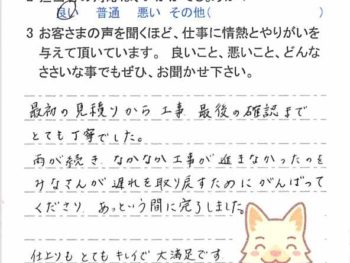 良い　普通　悪い　その他(　　　　)
3 お客さまの声を聞くほど、仕事に情熱とやりがいを
与えて頂いています。 良いこと、悪いこと、どんな
ささいな事でもぜひ、お聞かせ下さい。
最初の見積りから工事 最後の確認まで
とても丁寧でした。
雨が続き なかなか工事が進まなかったのを
みなさんが遅れを取り戻すためにがんばって
くださり あっという間に完了しました。
仕上りもとてもキレイで大満足です